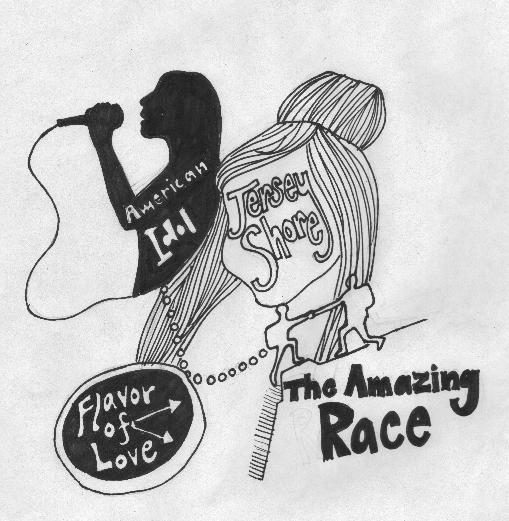 American
Idol
Jersey
Shore
Flavor
of
Love
The Amazing
Race